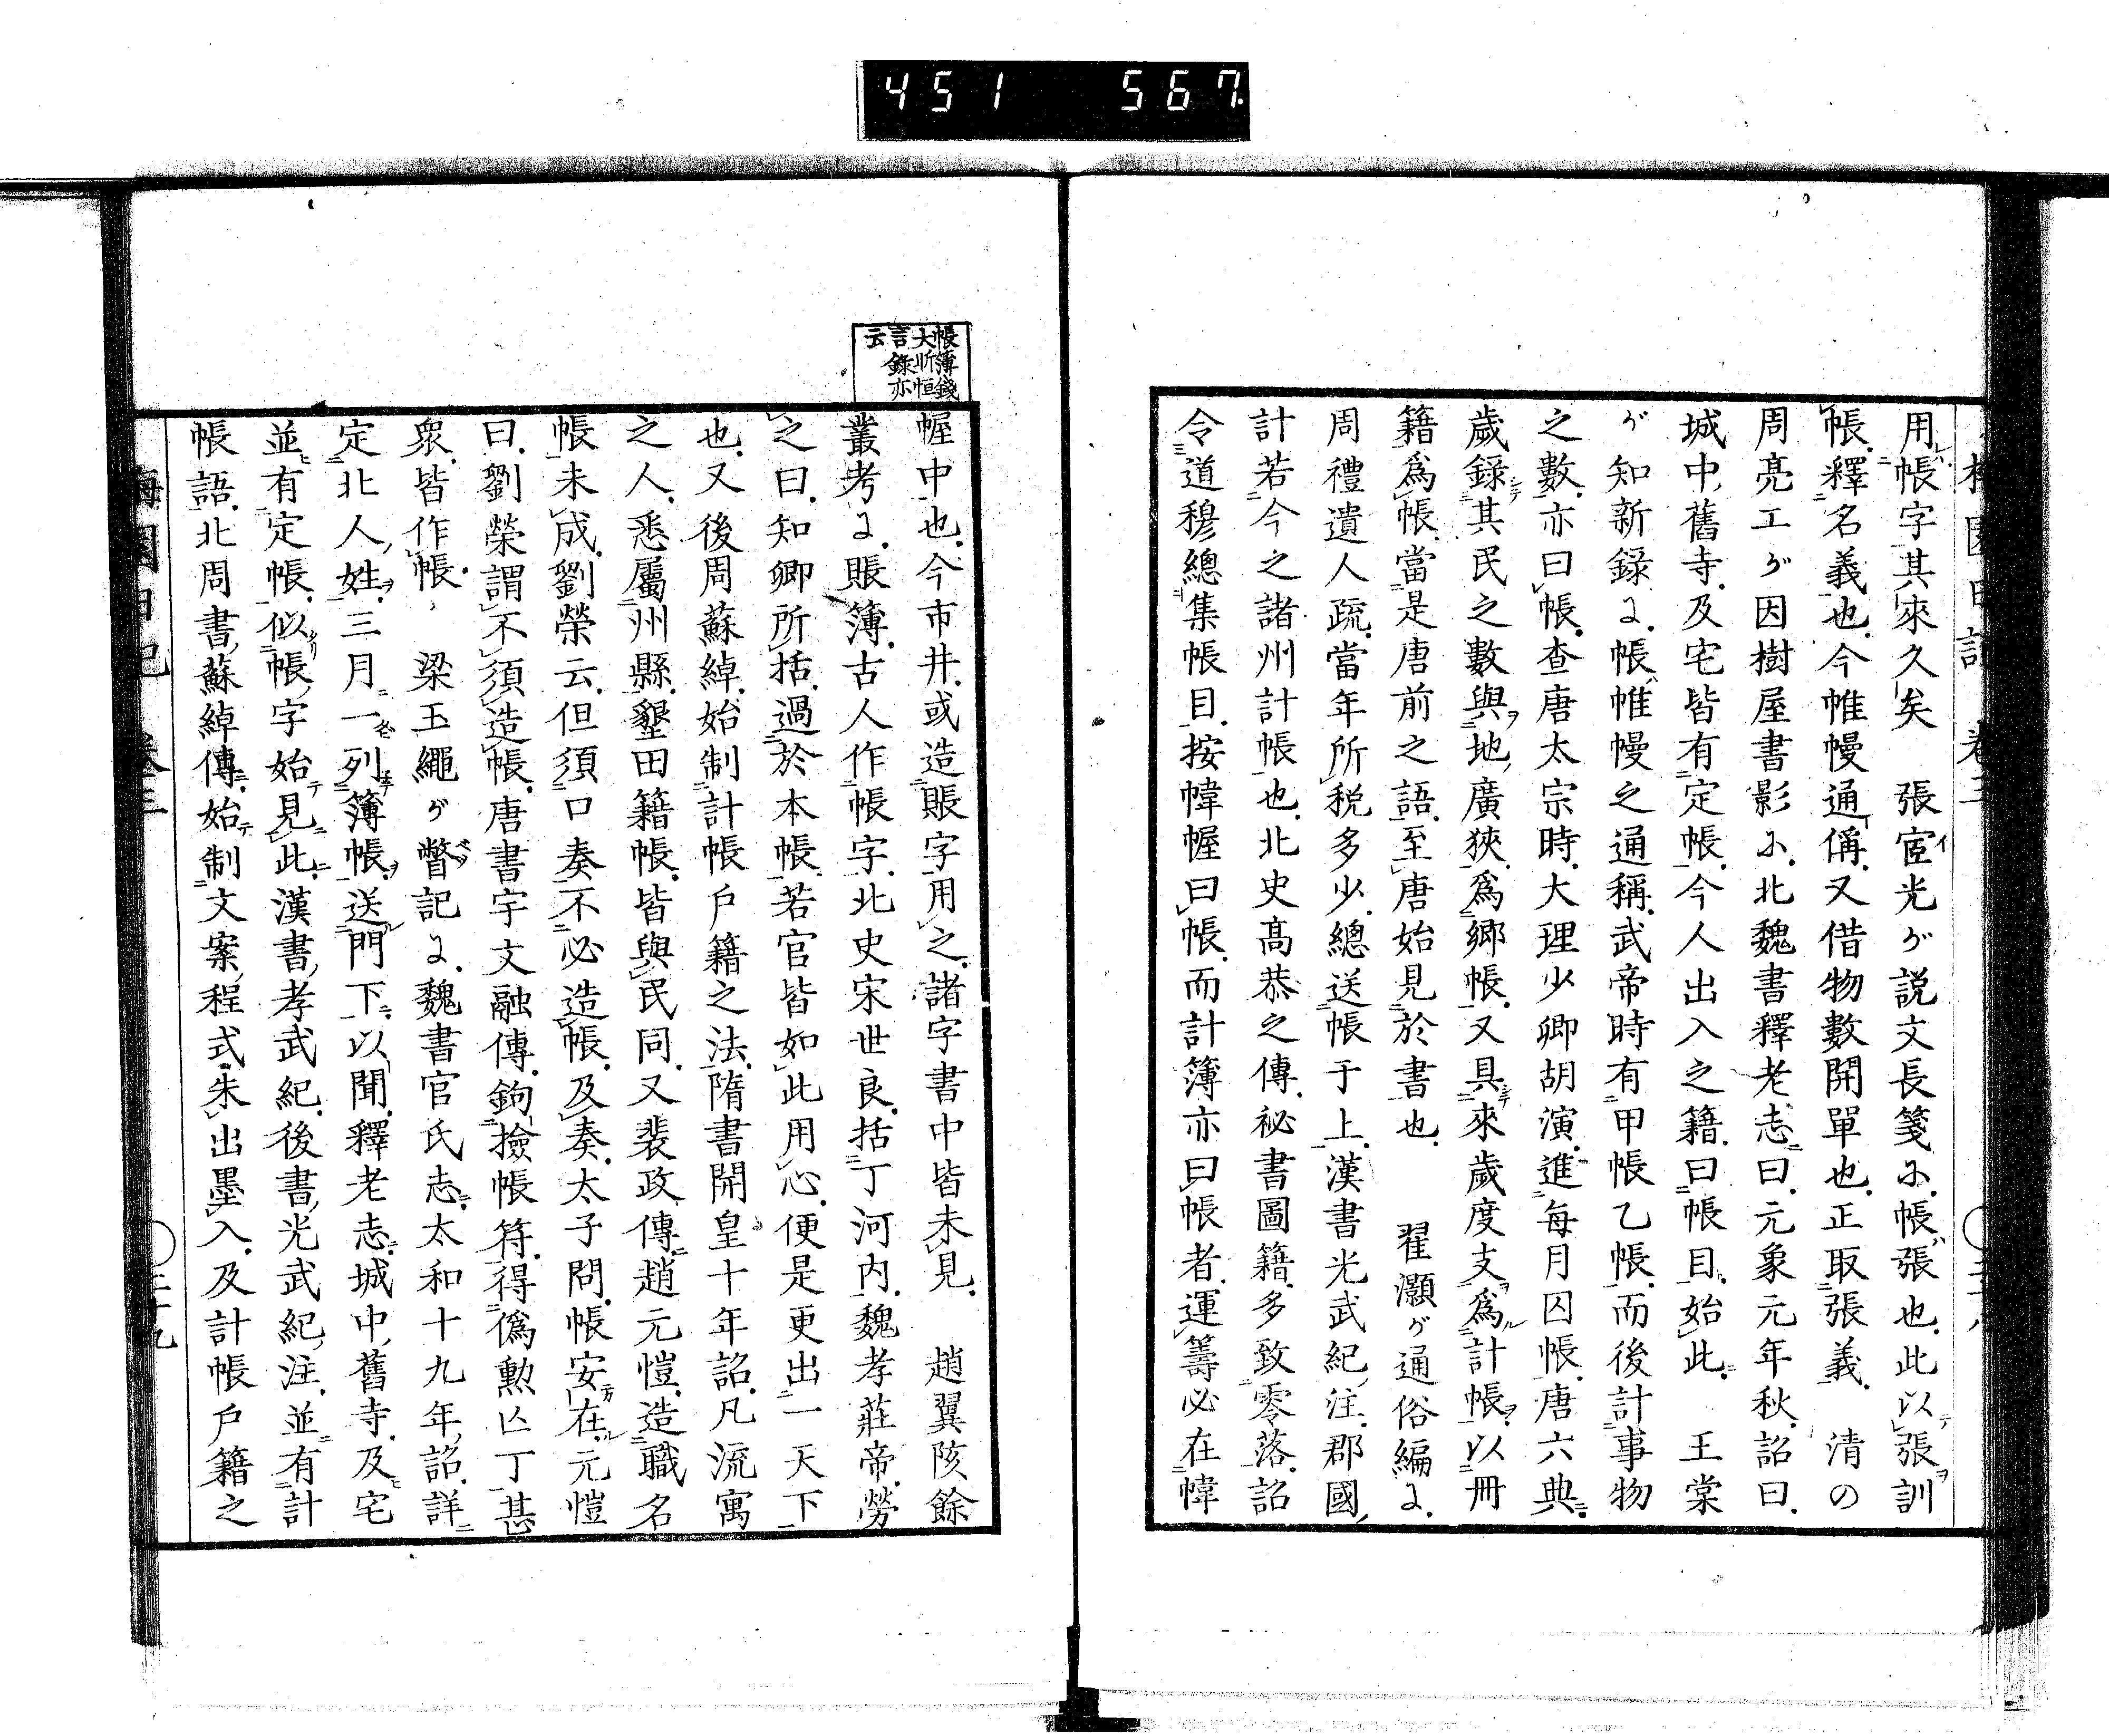 451 567
用帳字其來久矣 張宧光ガ説文長箋ニ帳ハ張也此以張訓
帳釋名義也今帷幔通偁又借物數開單也正取張義 清の
周亮工ガ因樹屋書影に北魏書釋老志曰元象元年秋詔曰
城中舊寺及宅皆有定帳今人出入之籍曰帳目始此 王棠
ガ知新錄に帳帷幔之通稱武帝時有甲帳乙帳而後計事物
之數亦曰帳查唐太宗時大理少卿胡演進每月囚帳唐六典
歲錄其民之數與地廣狹爲鄉帳又具來歲度支爲計帳以冊
籍爲帳當是唐前之語至唐始見於書也 翟灝ガ通俗編に
周禮遺人疏當年所税多少總送帳于上漢書光武紀注郡國
計若今之諸州計帳也北史高恭之傳秘書圖籍多致零落詔
令道穆總集帳目按幃幄曰帳而計簿亦曰帳者運籌必在幃
梅園日記 卷三
帳簿錢
大昕恒
言錄亦
云
幄中也今市井或造賬字用之諸字書中皆未見 趙翼陔餘
叢考に賬簿古人作帳字北史宋世良括丁河内魏孝莊帝勞
之曰知卿所括過於本帳若官皆如此用心便是更出一天下
也又後周蘇綽始制計帳戶籍之法隋書開皇十年詔凡流寓
之人悉屬州縣墾田籍帳皆與民同又裴政傳趙元愷造職名
帳未成劉榮云但須口奏不必造帳及奏太子問帳安在元愷
曰劉榮謂不須造帳唐書宇文融傳鉤撿帳符得僞勲亾丁甚
衆皆作帳 梁玉繩ガ瞥記に魏書官氏志太和十九年詔詳
定北人姓三月一列簿帳送門下以聞釋老志城中舊寺及宅
並有定帳似帳字始見此漢書孝武紀後書光武紀注並有計
帳語北周書蘇綽傳始制文案程式朱出墨入及計帳戶籍之
梅園日記 卷三 二十九